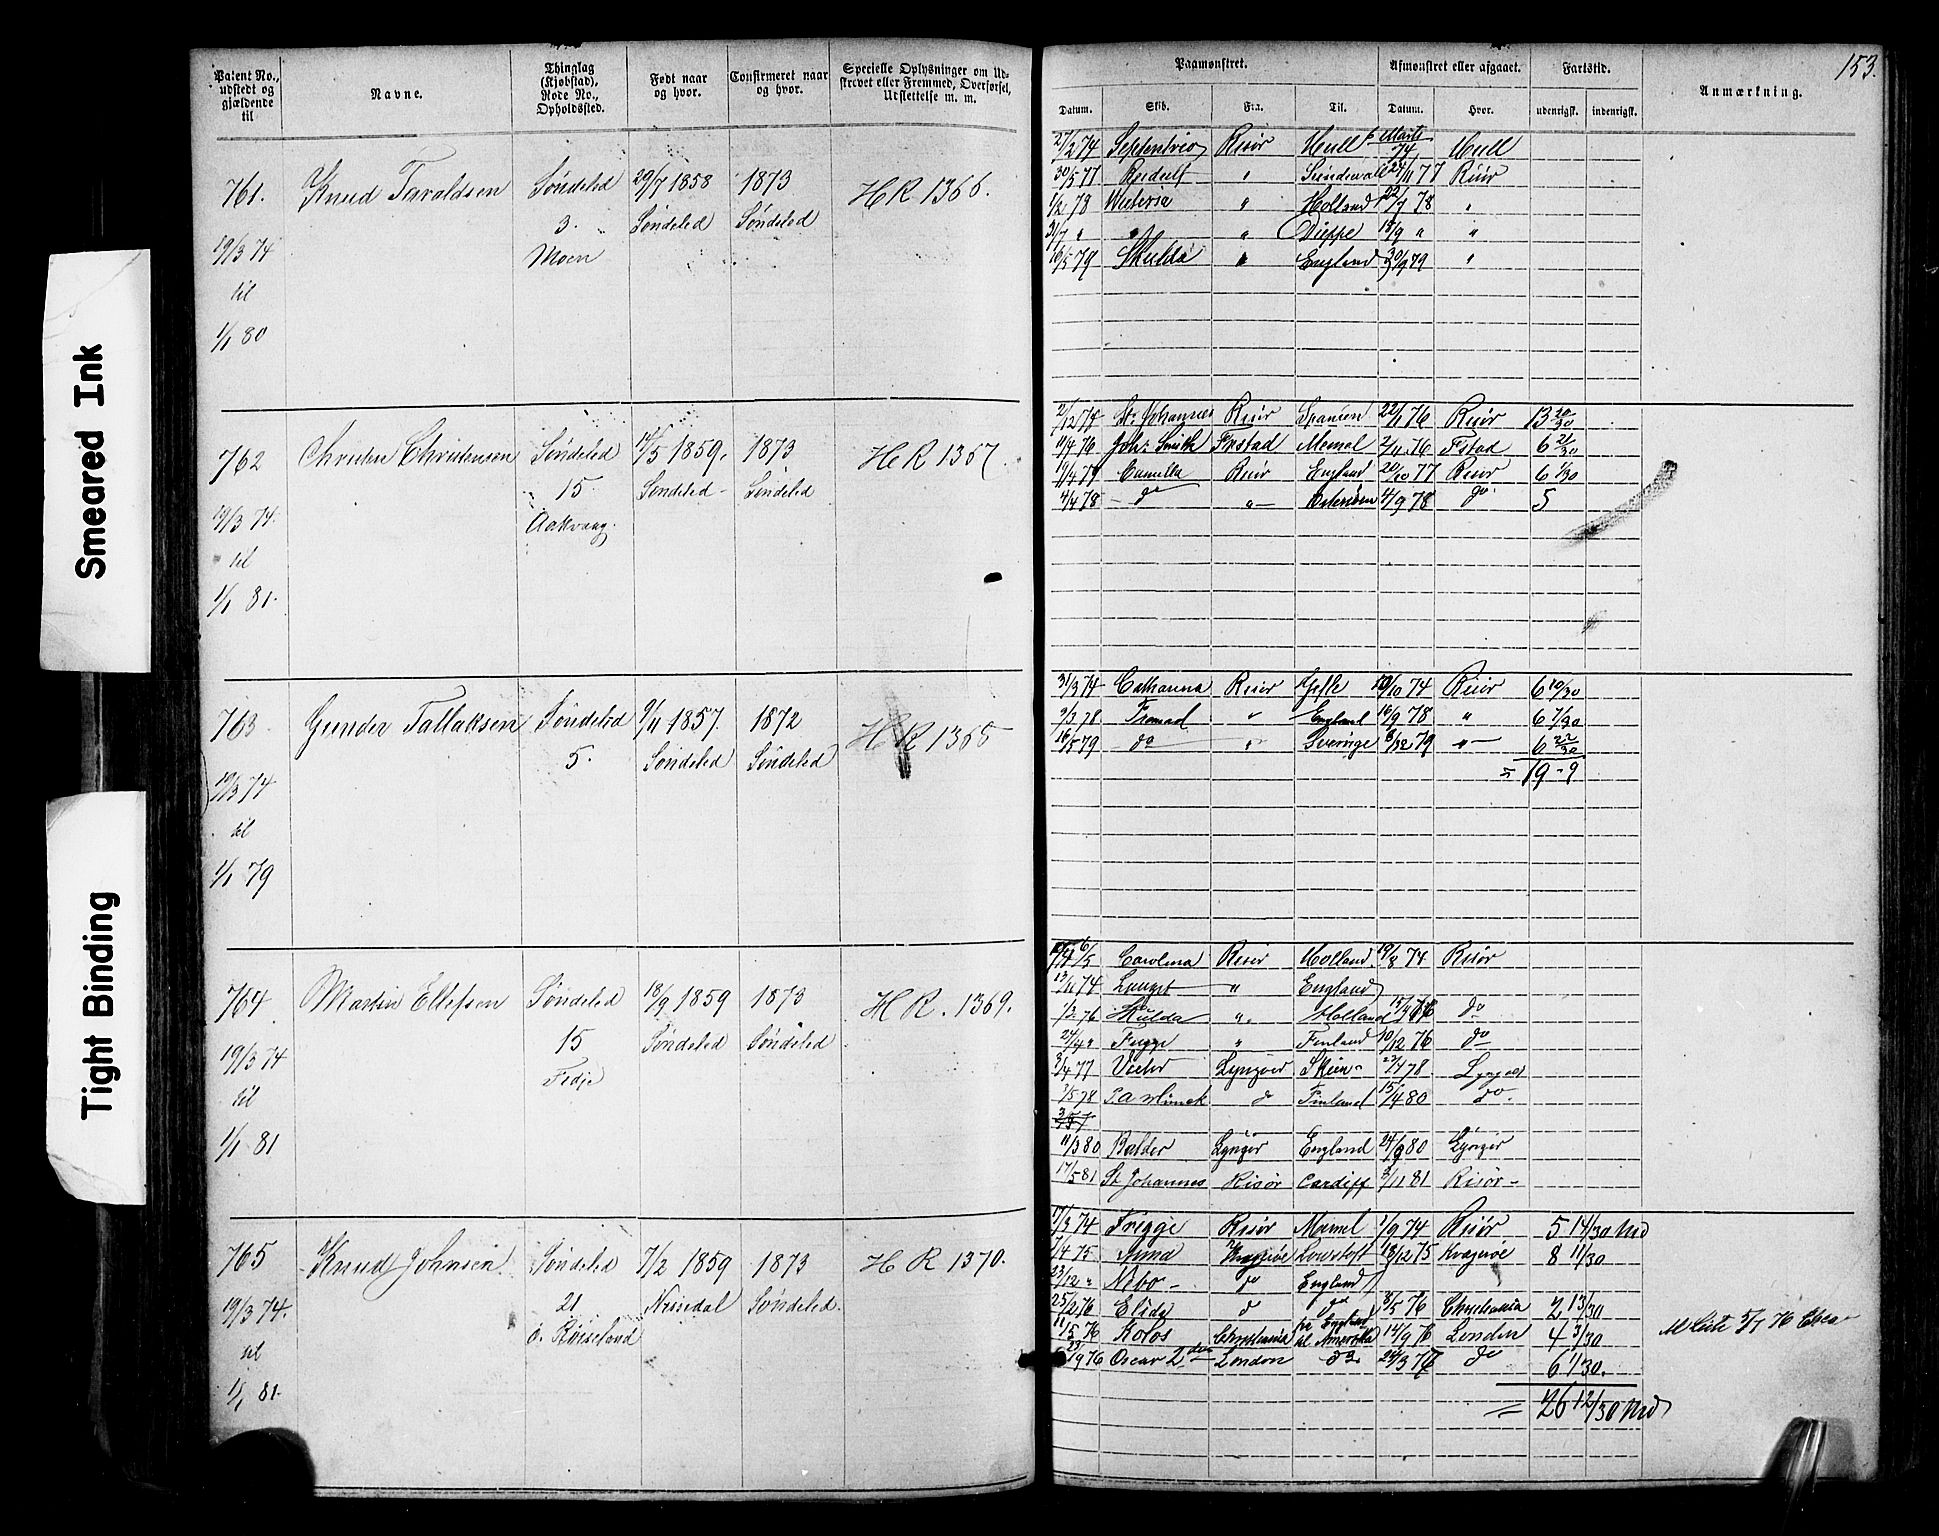 153.
Patent No., udstedt og gjældende til
Navne.
Thinglag (Kjøbstad), Rode No., Opholdssted.
Født naar og hvor.
Confirmeret naar og hvor.
Specielle Oplysninger om Udskrevet eller Fremmed, Overførsel, Udslettelse m. m.
Paamønstret.
Datum.
Skib.
Fra.
Til.
Afmønstret eller afgaaet.
Datum.
Hvor.
Fartstid.
udenrigsk.
indenrigsk.
Anmærkning.
Smeared Ink
Tight Binding
761. Knud Tarvaldsen Søndeled 29/7 1858 1873 HR 1366.
3. Søndeled Søndeled
19/3 74 Moen
til
1/1 80
27/2 74 Risør Hull Marts 74 Hull
30/5 77 " 77 Risør
1/2 78 " Holland 78 "
31/7 " " " Dieppe 15/9 " "
16/5 79 Skulda " England 30/9 79 "
762 Christen Christensen Søndeled 14/5 1859. 1873 HR 1367.
15. Søndeled Søndeled
19/3 74. Aakvaag.
til
1/1 81.
2/12 74 St. Johannes Risør Spanien 22/1 76 Risør 13 20/30
11/4 76 Joh. Smith F.stad Memel 2/11 76 Fstad 6 21/30
19/4 77 Camilla Risør England 20/10 77 Risør 6 1/30
4/4 78 do " 4/9 78 do 5
763. Gunder Tallaksen Søndeled 9/11 1857. 1872 HR 1368
5. Søndeled Søndeled
19/3 74
til
1/1 79
31/3 74 Catharina Risør Gefle 10/10 74 Risør 6 10/30
9/3 78 Fremad " England 16/9 78 " 6 7/30
16/5 79 do " Sverige 8/12 79 " 6 22/30
= 19 - 9
764. Martin Ellefsen Søndeled 18/9 1859 1873 HR. 1369.
15 Søndeled Søndeled
19/3 74 Fedje
til
1/1 81
Carolina Risør Holland 19/8 74 Risør
13/11 74 " England
1/2 76 Skulda " Holland do
21/4 " Frigge " Finland 10/12 76 do
3/4 77 Victor Lyngør Skien 78
3/5 78 P.A. Munck do Finland 15/4 80 do
11/3 80 Balder Lyngør England 24/9 80 Lyngør
17/5 81 St Johannes Risør Cardiff 3/11 81 Risør
765 Knud Johnsen Søndeled 7/2 1859 1873 HR 1370.
21 Søndeled.
19/3 74. Ø. Røiseland
til
1/1 81.
17/3 74 Frigge Risør Memel 1/9 74 Risør 5 14/30 Md
1/4 75 Kragerøe Lowstoft 18/12 75 Kragerøe 8 11/30
23/12 " Nebo do England
25/2 76 Elida do do 8/5 76 Christiania 2 13/30
11/5 76 Kolos Christiania fr England til Amerika 14/9 76 London 4 3/30
23/9 76 Oscar 2den London do 24/3 77 do 6 1/30.
= 26 12/30 Md